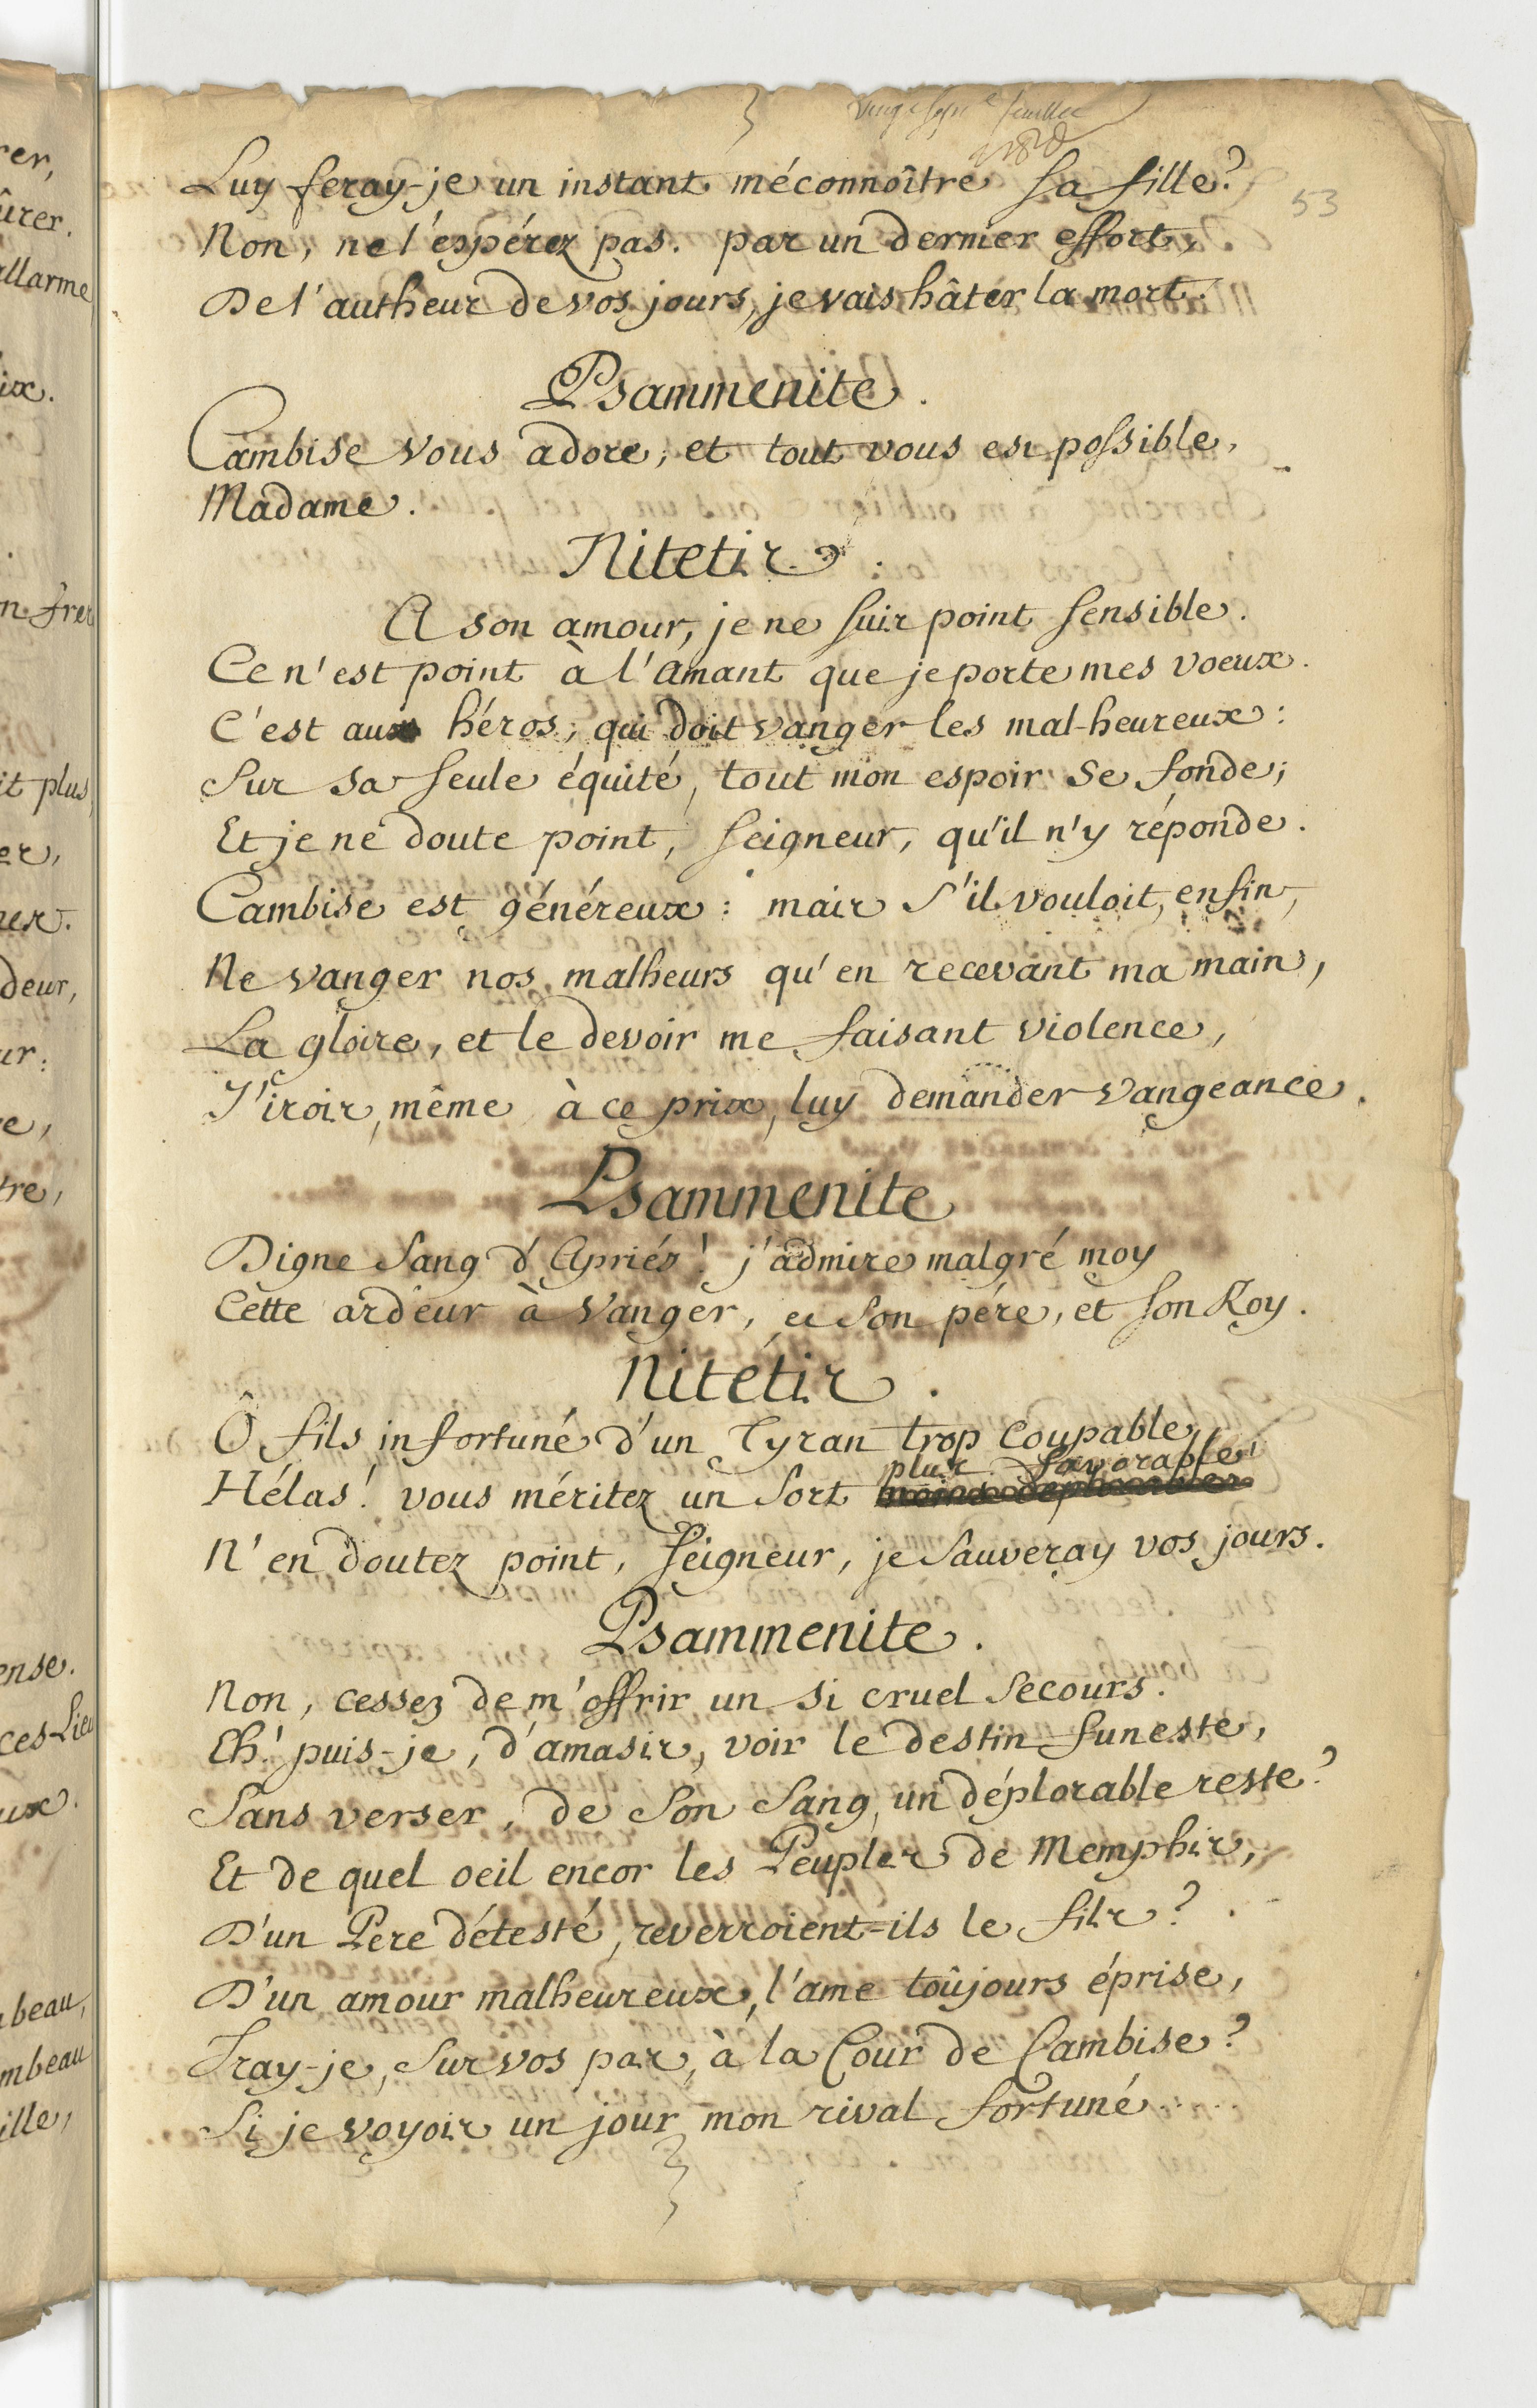 vingt sept.e feuillet
53
Luy feray-je un instant méconnoître sa fille?
Non, ne l'espérez pas. par un dernier effort,
De l'autheur de vos jours, je vais hâter la mort.
Psammenite.
Cambise vous adore, et tout vous est possible,
Madame.
Nitetis.
A son amour, je ne suis point sensible.
Ce n'est point à l'amant que je porte mes voeux.
C'est au héros, qui doit vanger les mal-heureux:
Sur sa seule équité, tout mon espoir se fonde;
Et je ne doute point, seigneur, qu'il n'y réponde.
Cambise est généreux: mais s'il vouloit, enfin,
Ne vanger nos malheurs qu'en recevant ma main,
La gloire, et le devoir me faisant violence,
J'irois, même à ce prix, luy demander vangeance.
Psammenite
Digne sang d'Apriés! j'admire malgré moy
Cette ardeur à vanger, et son pére, et son Roy.
Nitétis.
Ô fils infortuné d'un Tyran trop coupable,
plus favorable!
Hélas! vous méritez un sort moins deplorable
N'en doutez point, seigneur, je sauveray vos jours.
Psammenite.
Non, cessez de m'offrir un si cruel secours.
Eh! puis-je, d'amasis, voir le destin funeste,
Sans verser, de son sang, un déplorable reste?
Et de quel oeil encor les Peuples de Memphis,
D'un Pere détesté, reverroient-ils le fils?
D'un amour malheureux, l'ame toûjours éprise,
Iray-je, sur vos pas, à la Cour de Cambise?
Si je voyois un jour mon rival fortuné
rer,
ûrer.
allarme
ix.
n frer
it plus,
er,
ner.
deur,
ur:
e,
tre,
ense.
ces Lieu
ux.
beau,
mbeau
ille,